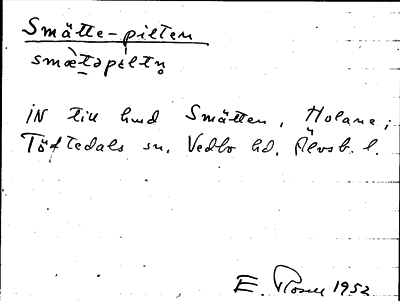 Smätte-pilten
smæ̀təpɩltn̥
IN till lmd Smätten, Holane,
Töftedals sn, Vedbo hd, Älvsb. l.
E. Rosell 1952